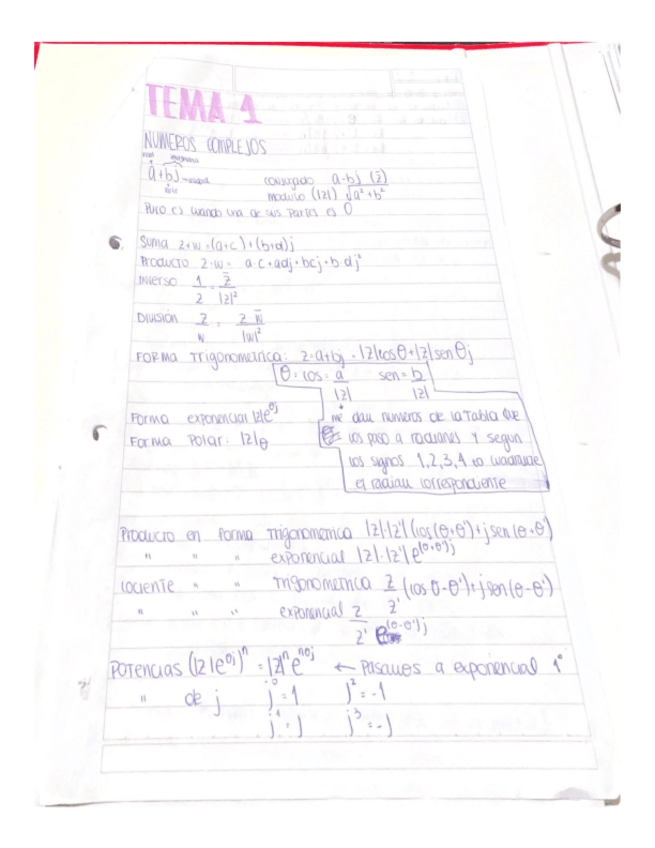 TEMA 1
NUMEROS COMPLEJOS
real imaginaria
a+bj
conjugado a-bj (z̄)
modulo (|z|) √a²+b²
Puro es cuando una de sus partes es 0
Suma z+w=(a+c)+(b+d)j
Producto z·w= a·c+adj+bcj+b·dj²
Inverso 1/z = z̄/|z|²
División z/w = z w̄/|w|²
Forma Trigonometrica: z=a+bj = |z|cosθ+|z|senθj
θ=cos= a/|z| sen= b/|z|
Forma exponencial |z|e^θj
me dan numeros de la tabla que
Forma Polar: |z|θ
los paso a radianes y segun
los signos 1,2,3,4 to cuadrante
el radian correspondiente
Producto en forma trigonometrica |z|·|z'|(cos(θ+θ')+jsen(θ+θ')
" " " exponencial |z|·|z'|e^(θ+θ')j
Cociente " " trigonometrica z/z' (cosθ-θ')+jsen(θ-θ')
" " " exponencial z/z' e^(θ-θ')j
Potencias (|z|e^θj)^n = |z|^n e^nθj ← Pasarles a exponencial 1º
" de j j⁰=1 j²=-1
j¹=j j³=-j